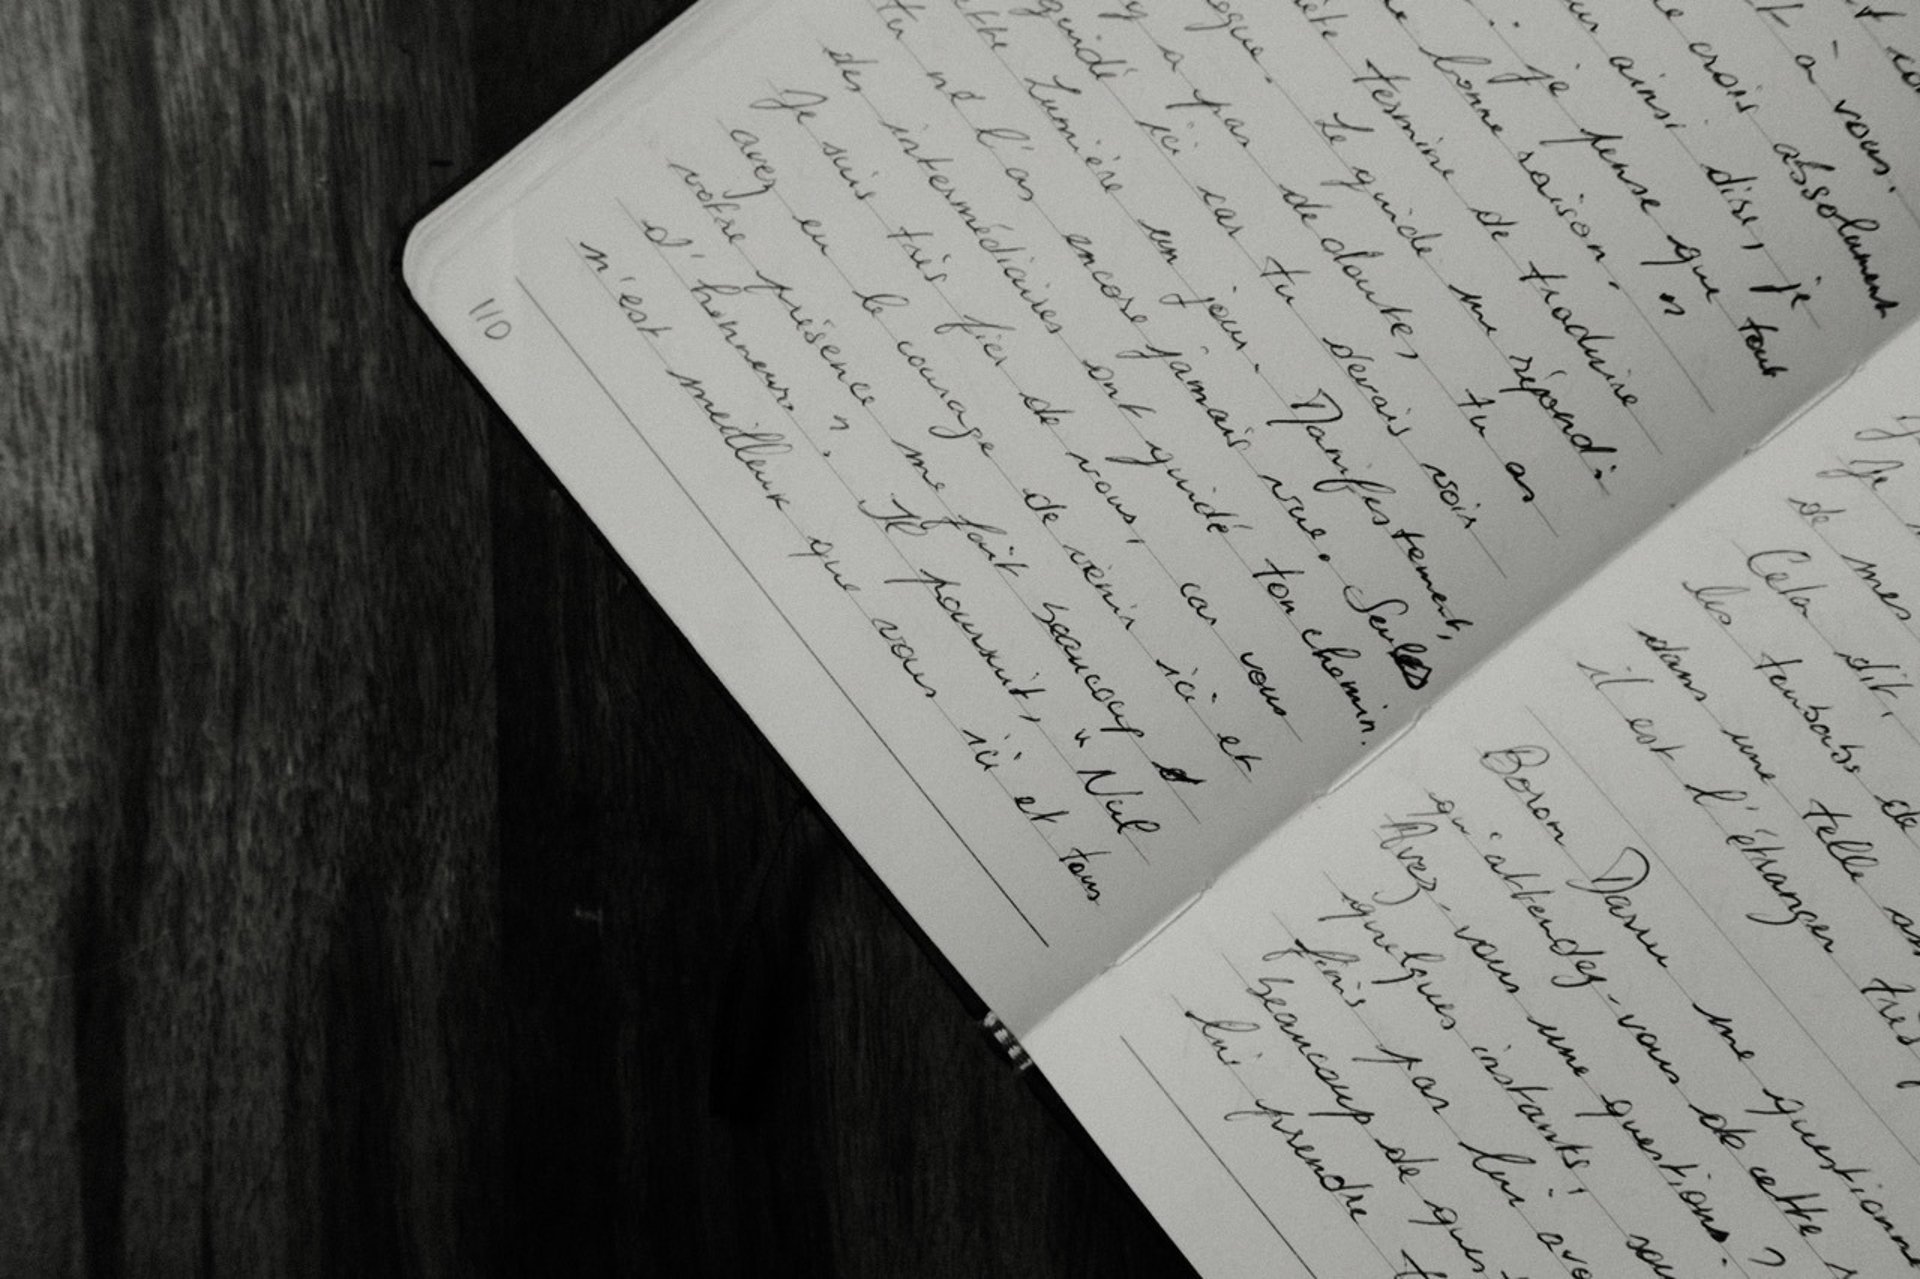 à vous.
crois absolument
ainsi dire, je
je pense que tout
bonne raison.
termine de traduire
Le guide me répond :
y a pas de doute, tu as
guidé ici car tu devrais voir
cette Lumière un jour. Manifestement,
tu ne l'as encore jamais vue. Seules
des intermédiaires ont guidé ton chemin.
Je suis très fier de vous, car vous
avez eu le courage de venir ici et
votre présence me fait beaucoup
d'honneur. » Il poursuit, « Nul
n'est meilleur que vous ici et tous
110
Je
de mes
Cela dit,
les toubabs de
dans une telle
il est l'étranger très
Borom Darou me questionne
qu'attendez-vous de cette
Avez-vous une question ?
quelques instants,
finis par lui
beaucoup de
lui prendre